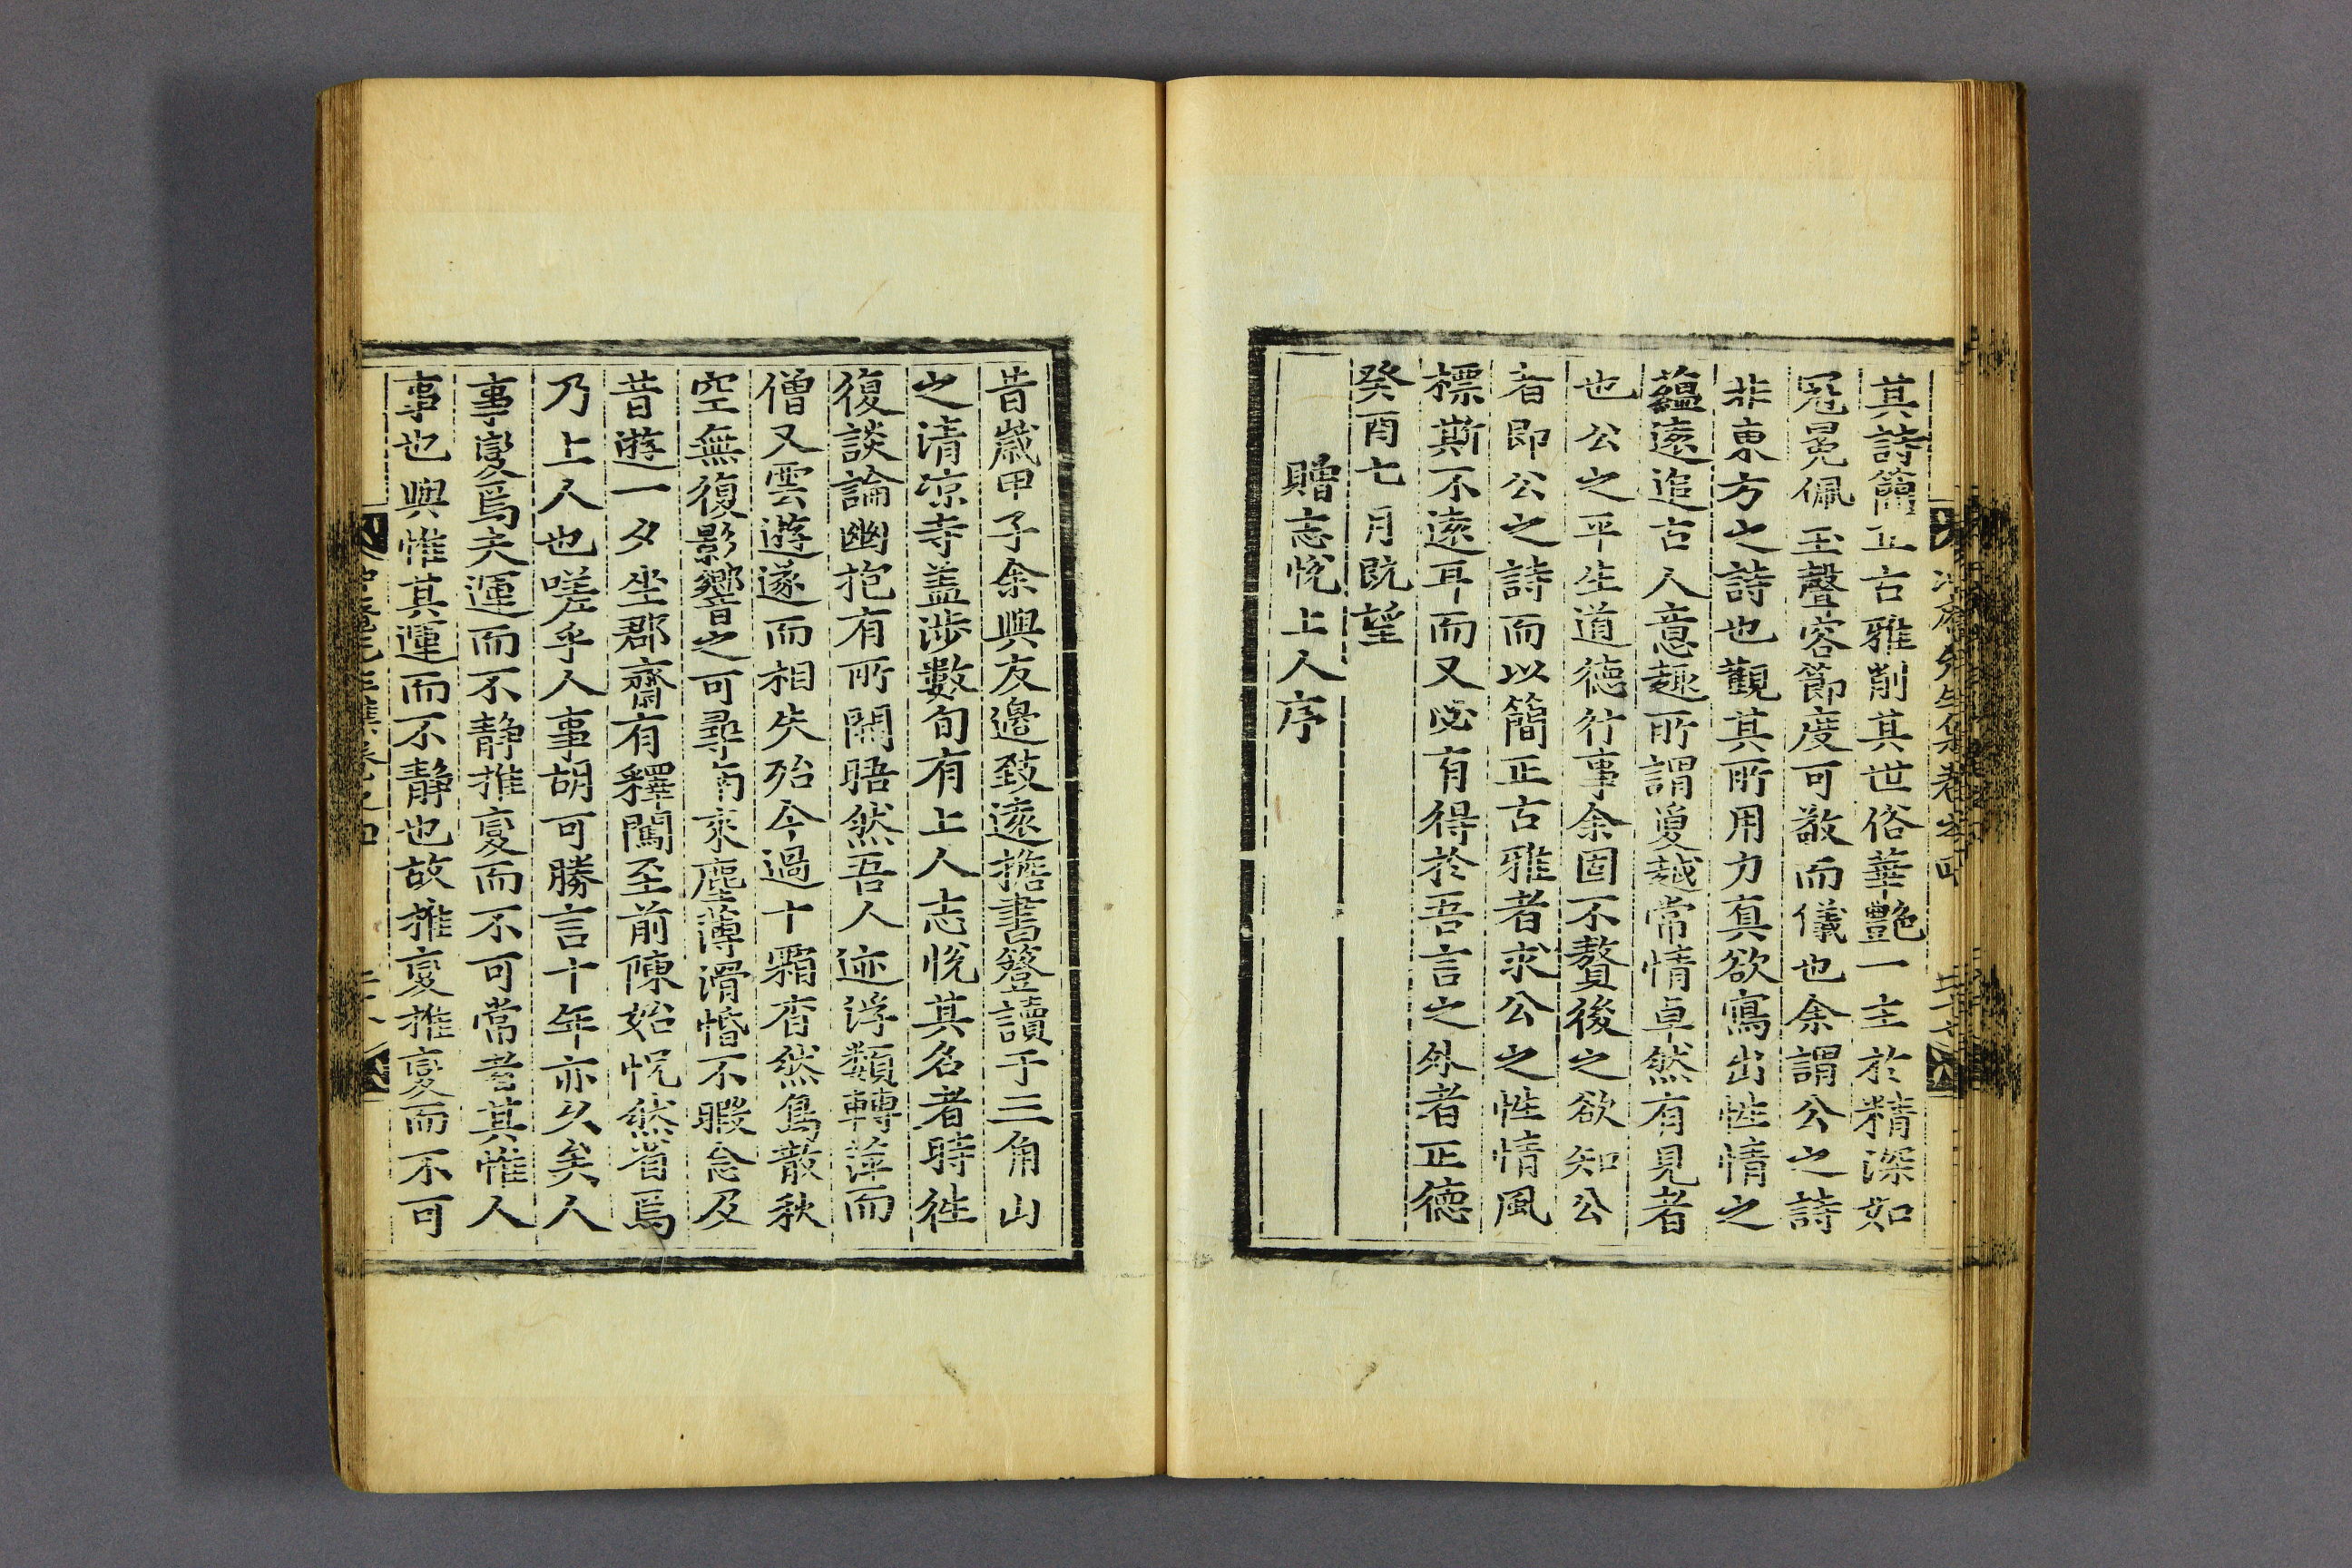 其詩簡正古雅削其世俗華艶一主於精深如
冠冕佩玉聲容節度可敬而儀也余謂公之詩
非東方之詩也觀其所用力真欲寫出性情之
蘊遠追古人意趣所謂敻越常情卓然有見者
也公之平生道德行事余固不贅後之欲知公
者即公之詩而以簡正古雅者求公之性情風
標斯不遠耳而又必有得於吾言之外者正德
癸酉七月旣望
贈志悅上人序
昔歲甲子余與友邊致遠擔書簦讀于三角山
之清凉寺盖涉數旬有上人志悅其名者時徃
復談論幽抱有所開晤然吾人迹浮類轉萍而
僧又雲遊遂而相失殆今過十霜杳然鳥散秋
空無復影響之可尋南來塵薄滑惛不暇念及
昔遊一夕坐郡齋有釋闖至前陳始怳然省焉
乃上人也嗟乎人事胡可勝言十年亦久矣人
事變焉夫運而不静推變而不可常者其惟人
事也與惟其運而不静也故推變推變而不可